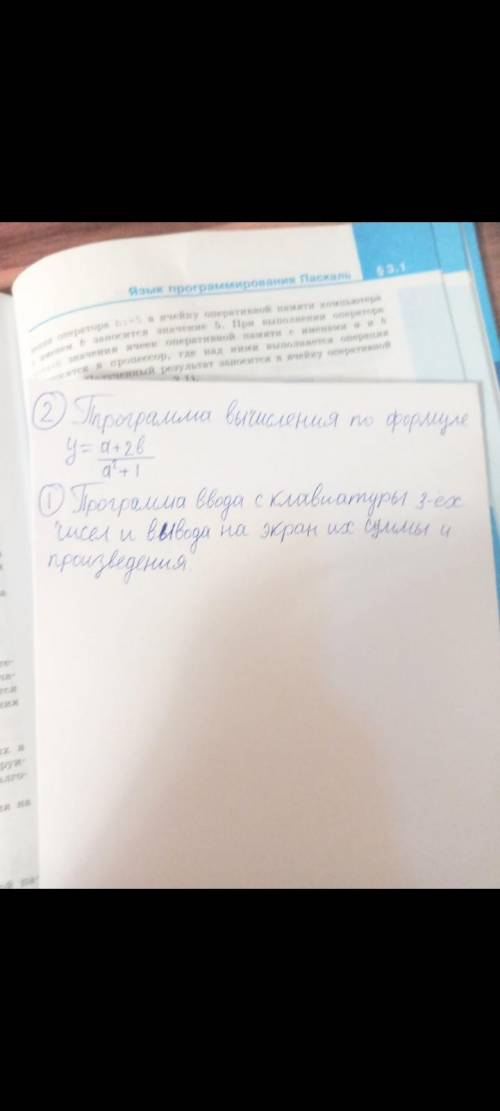 Язык программирования Паскаль § 3.1
нения оператора b:=5 в ячейку оперативной памяти компьютера
с именем b заносится значение 5. При выполнении оператора
значения ячеек оперативной памяти с именами a и b
в процессор, где над ними выполняется операция
Полученный результат заносится в ячейку оперативной
② Ппрограмма вычисления по формуле
y = a+2b
a²+1
① Программа ввода с клавиатуры 3-ех
чисел и вывода на экран их суммы и
произведения